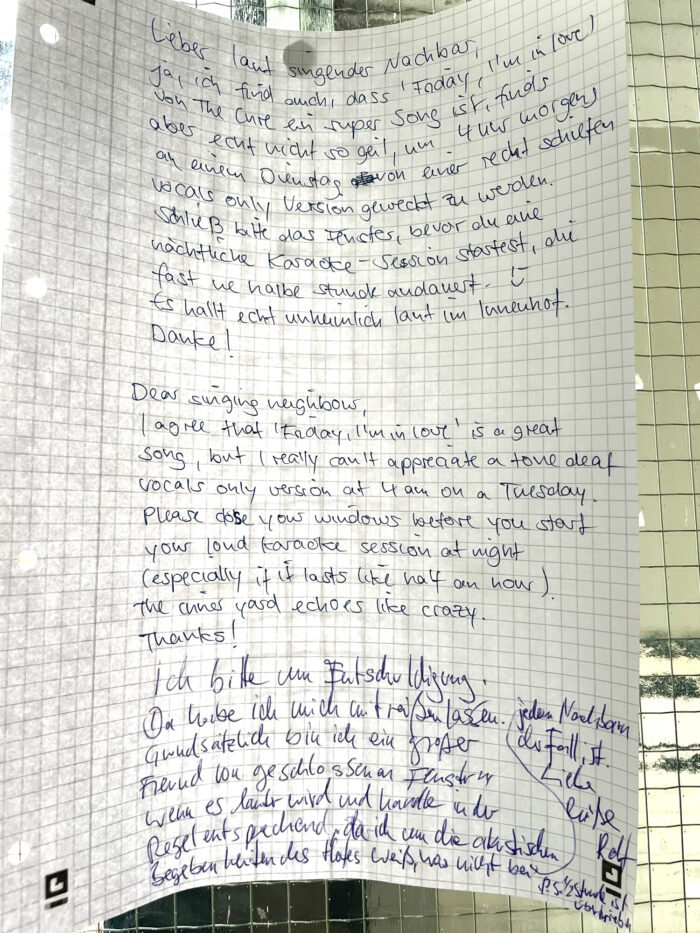 Lieber laut singender Nachbar,
ja, ich find auch, dass 'Friday, I'm in love'
von The Cure ein super Song ist, finds
aber echt nicht so geil, um 4 Uhr morgens
an einem Dienstag von einer recht schiefen
vocals only Version geweckt zu werden.
Schließ bitte das Fenster, bevor du eine
nächtliche Karaoke-Session startest, die
fast ne halbe Stunde andauert.
Es hallt echt unheimlich laut im Innenhof.
Danke!
Dear singing neighbour,
I agree that 'Friday, I'm in love' is a great
song, but I really can't appreciate a tone deaf
vocals only version at 4 am on a Tuesday.
Please close your windows before you start
your loud karaoke session at night
(especially if it lasts like half an hour).
The inner yard echoes like crazy.
Thanks!
Ich bitte um Entschuldigung.
Da habe ich mich mitreißen lassen.
Grundsätzlich bin ich ein großer
Freund von geschlossenen Fenstern
wenn es lauter wird und handle in der
Regel entsprechend, da ich um die akustischen
Begebenheiten des Hofes weiß, was nicht bei
jedem Nachbarn
der Fall ist.
Liebe
Grüße
Rolf
P.S. 1/2 Stunde ist
übertrieben